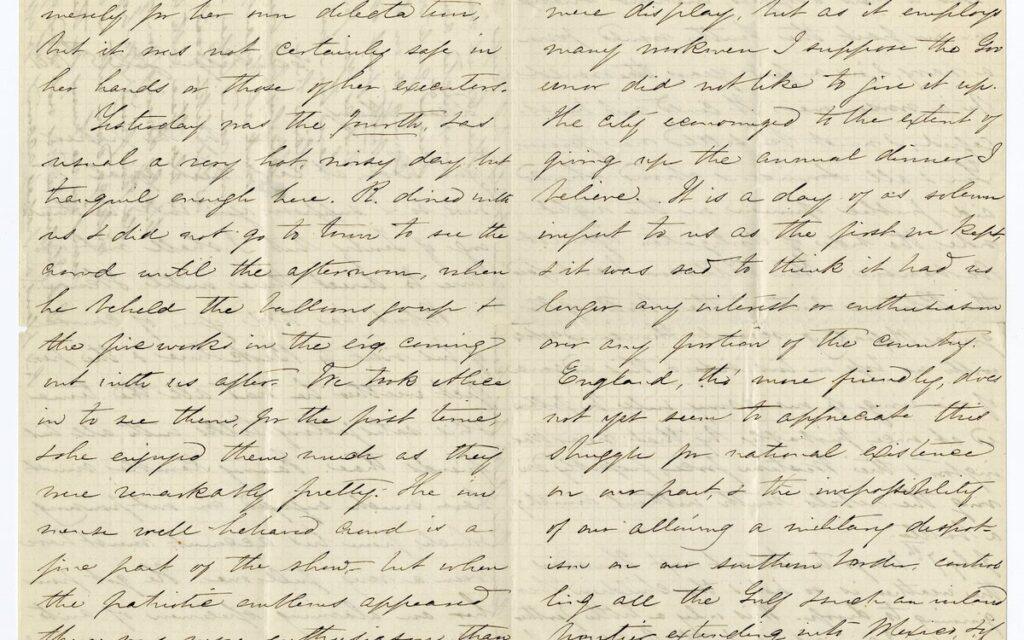 merely for her own delectation,
but it was not certainly safe in
her hands or those of her executors.
Yesterday was the fourth, & as
usual a very hot, noisy day, but
tranquil enough here. R. dined with
us & did not go to town to see the
crowd until the afternoon, when
he beheld the balloons go up &
the fire works in the evg. coming
out with us after. We took Alice
in to see them, for the first time,
& she enjoyed them much as they
were remarkably pretty. The im
mense well behaved crowd is a
fine part of the show, but when
the patriotic emblems appeared
there was more enthusiasm than
mere display, but as it employs
many workmen I suppose the Gov
ernor did not like to give it up.
The city economized to the extent of
giving up the annual dinner I
believe. It is a day of as solemn
import to us as the first we kept,
& it was sad to think it had no
longer any interest or enthusiasm
over any portion of the country.
England, tho' more friendly, does
not yet seem to appreciate this
struggle for national existence
on our part, & the impossibility
of our allowing a military despot-
ism on our southern border, control
ling all the Gulf & such an inland
frontier extending into Mexico